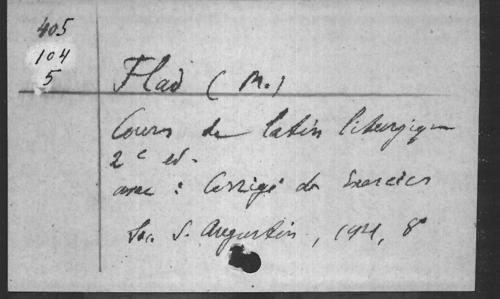 405
104
5
Flad (M.)
Cours de latin liturgique
2e ed.
avec : Corrigé des Exercices
Soc. S. Augustin, 1921, 8°